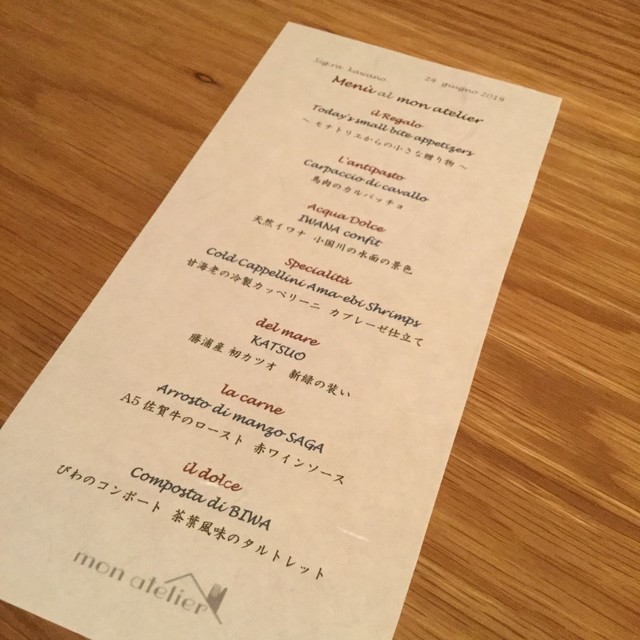 Sig.ra. Kawano 24 giugno 2019
Menù al mon atelier
il Regalo
Today's small bite appetizers
～モナトリエからの小さな贈り物～
L'antipasto
Carpaccio di cavallo
馬肉のカルパッチョ
Acqua Dolce
IWANA confit
天然イワナ 小国川の水面の景色
Specialità
Cold Cappellini Ama-ebi Shrimps
甘海老の冷製カッペリーニ カプレーゼ仕立て
del mare
KATSUO
勝浦産 初カツオ 新緑の装い
la carne
Arrosto di manzo SAGA
A5佐賀牛のロースト 赤ワインソース
il dolce
Composta di BIWA
びわのコンポート 茶葉風味のタルトレット
mon atelier